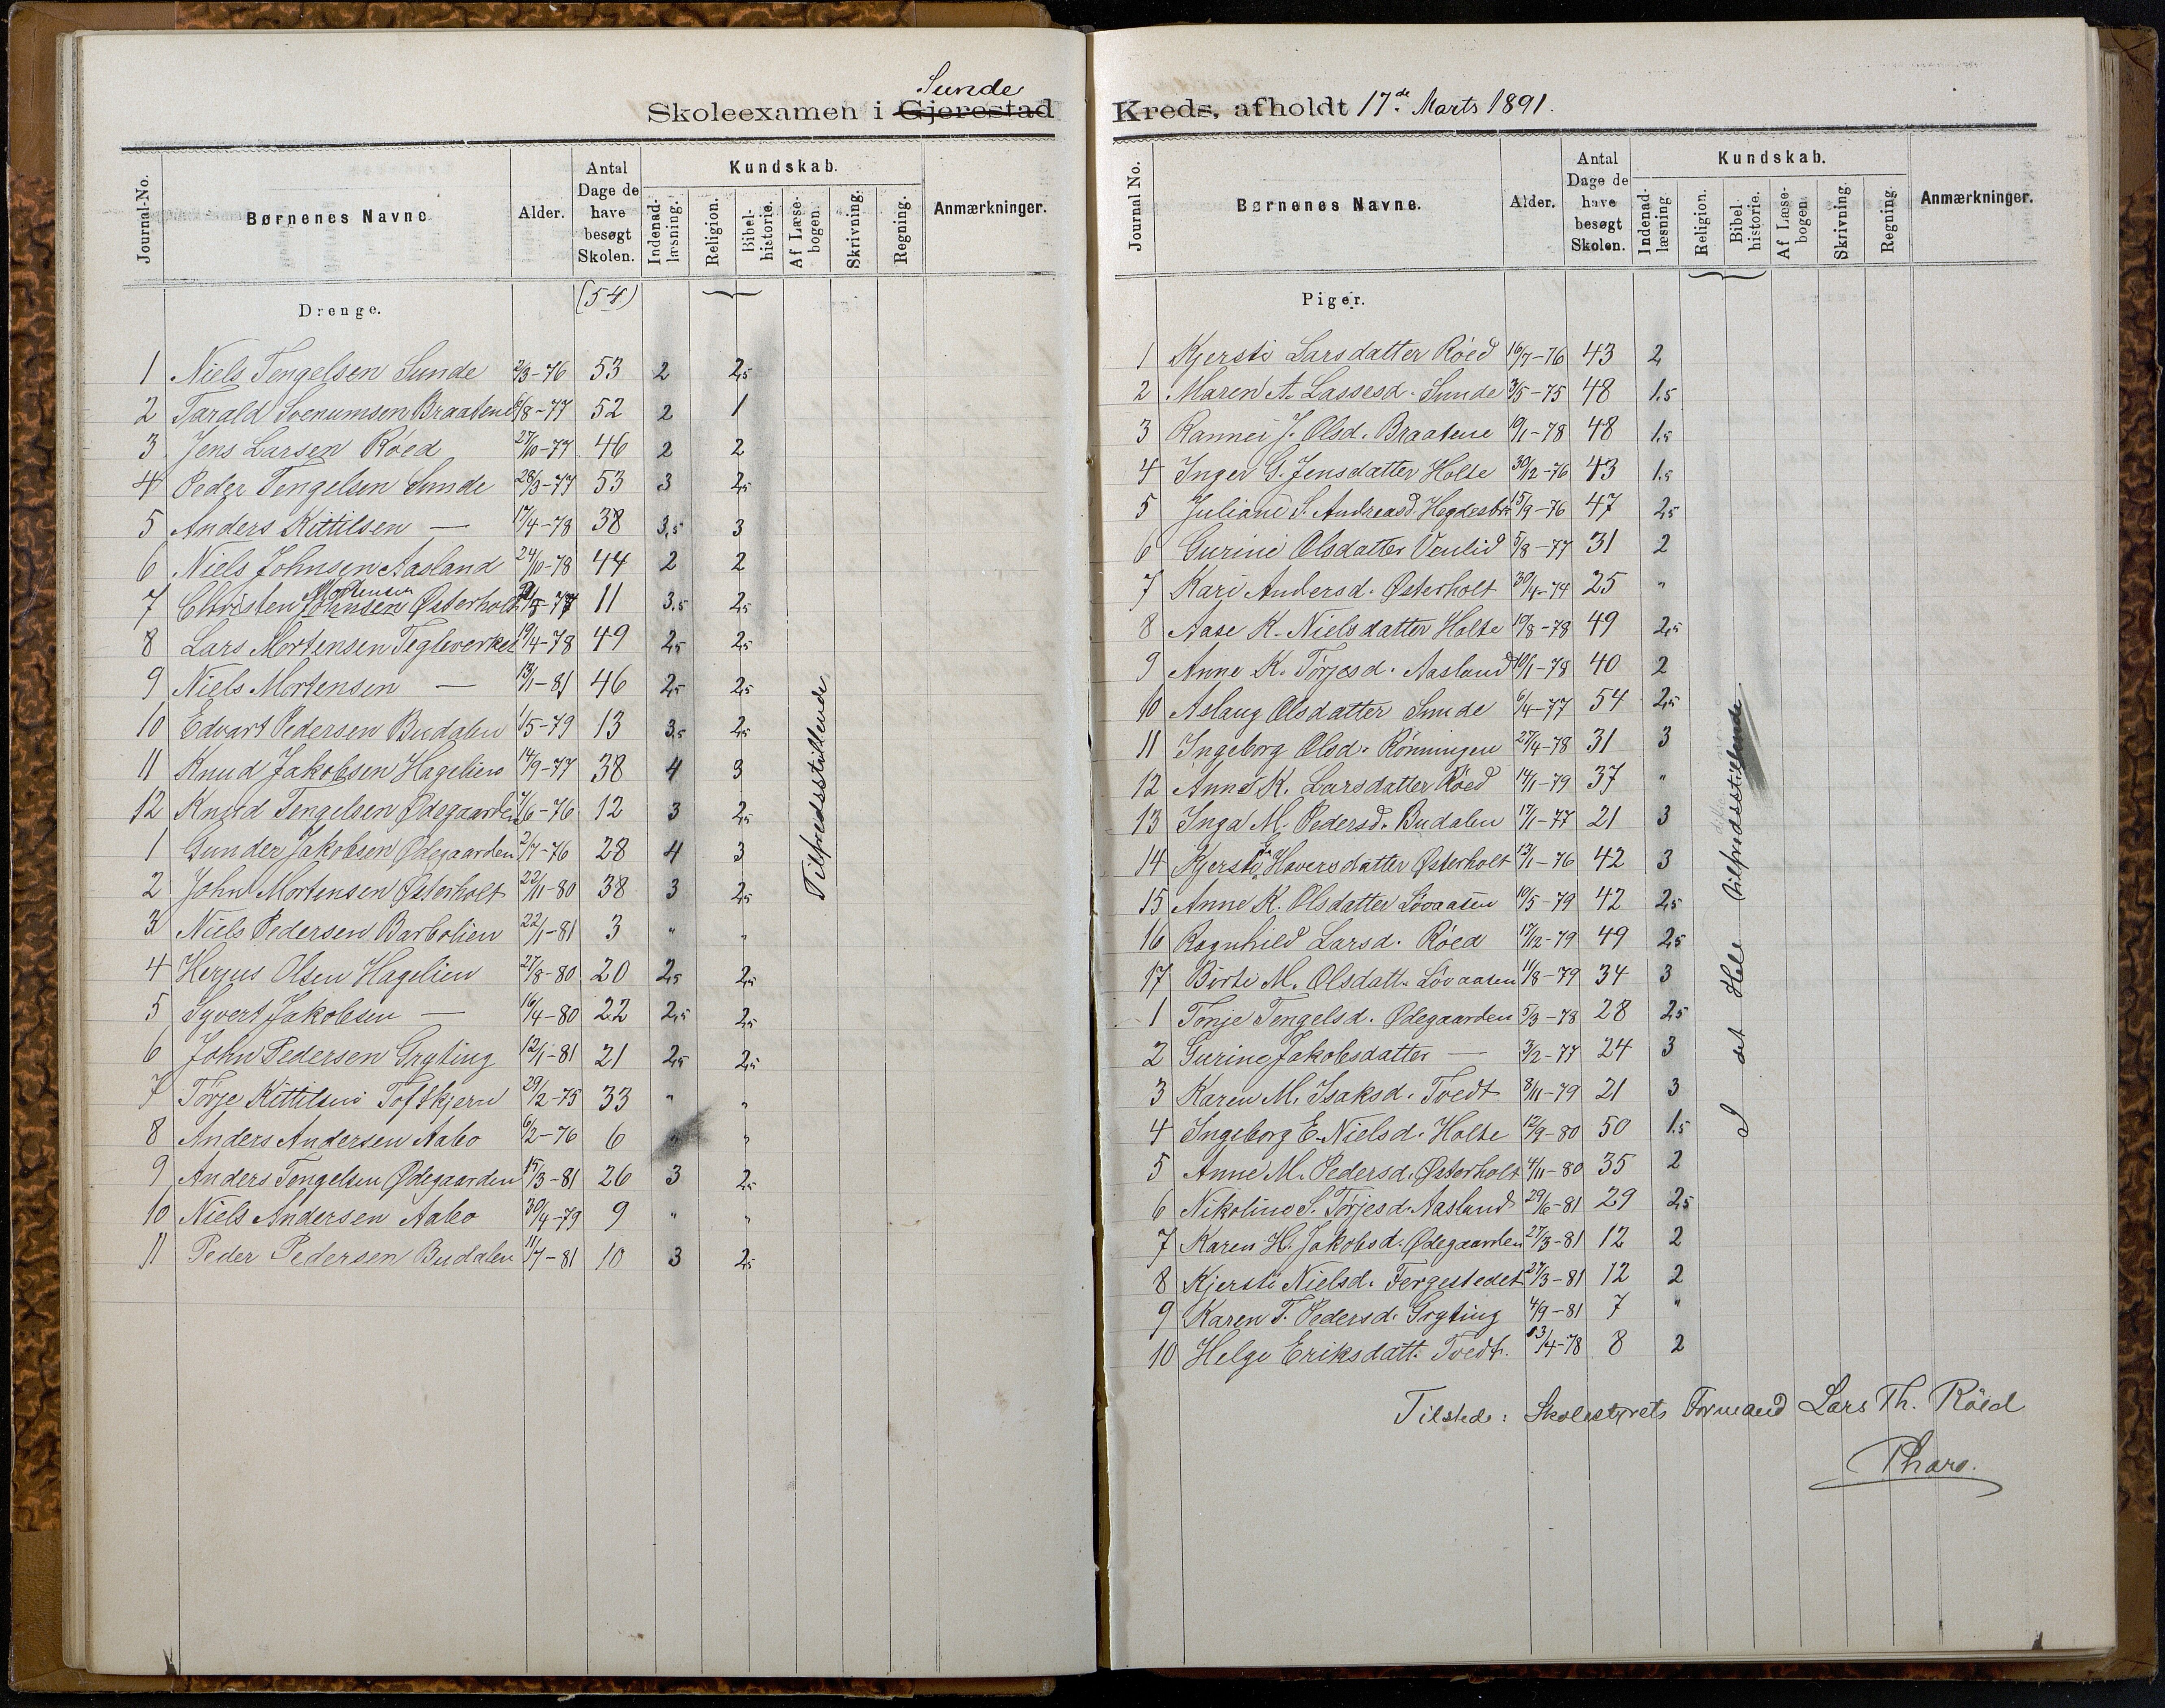 Sunde
Skoleexamen i Gjerestad
Journal-No. Børnenes Navne Alder. Antal Dage de have besøgt Skolen. Kundskab. Indenad-læsning. Religion. Bibel-historie. Af Læse-bogen. Skrivning. Regning. Anmærkninger.
Drenge. (54)
1 Niels Tengelsen Sunde 2/3-76 53 2 2,5
2 Tarald Svenumsen Braatene /8-77 52 2 1
3 Jens Larsen Röed 27/10-77 46 2 2
4 Peder Tengelsen Sunde 28/3-77 53 3 2,5
5 Anders Kittilsen — 17/4-78 38 3,5 3
6 Niels Johnsen Aasland 24/10-78 44 2 2
Mortensen
7 Christen Johnsen Østerholt /5-77 11 3,5 2,5
8 Lars Mortensen Teglverket 19/4-78 49 2,5 2,5
9 Niels Mortensen — 13/1-81 46 2,5 2,5
10 Edvart Pedersen Budalen 1/5-79 13 3,5 2,5
11 Knud Jakobsen Hagelien 14/9-77 38 4 3
12 Knud Tengelsen Ødegaarden /6-76 12 3 2,5
1 Gunder Jakobsen Ødegaarden 2/7-76 28 4 3
2 John Mortensen Østerholt 22/11-80 38 3 2,5
3 Niels Pedersen Barbolien 22/1-81 3 " "
4 Herjus Olsen Hagelien 27/8-80 20 2,5 2,5
5 Syvert Jakobsen — 16/4-80 22 2,5 2,5
6 John Pedersen Gryting 12/1-81 21 2,5 2,5
7 Törje Kittilsen Toftkjern 29/2-75 33 " "
8 Anders Andersen Aabo 6/2-76 6 " "
9 Anders Tengelsen Ødegaarden 15/3-81 26 3 2,5
10 Niels Andersen Aabo 30/4-79 9 " "
11 Peder Pedersen Budalen 11/7-81 10 3 2,5
Tilfredsstillende
Kreds, afholdt 17de Marts 1891.
Journal No. Børnenes Navne. Alder. Antal Dage de have besøgt Skolen. Kundskab. Indenad-læsning Religion. Bibel-historie. Af Læse-bogen. Skrivning. Regning. Anmærkninger.
Piger.
1 Kjersti Larsdatter Röed 16/7-76 43 2
2 Maren A. Lassesd. Sunde 3/5-75 48 1.5
3 Rannei J. Olsd. Braatene 19/1-78 48 1.5
4 Inger G. Jensdatter Holte 30/12-76 43 1.5
5 Juliane S. Andreasd. 15/9-76 47 2,5
6 Gurine Olsdatter Venlid 5/8-77 31 2
7 Kari Andersd. Østerholt 30/4-74 25 "
8 Aase K. Nielsdatter Holte 19/8-78 49 2,5
9 Anne K. Törjesd. Aasland 10/1-78 40 2
10 Aslaug Olsdatter Sunde 6/4-77 54 2,5
11 Ingeborg Olsd. Rönningen 27/4-78 31 3
12 Anne K. Larsdatter Röed 14/1-79 37 "
13 Inga M. Pedersd. Budalen 17/1-77 21 3
14 Kjersti Haversdatter Østerholt 13/1-76 42 3
15 Anne K. Olsdatter Lövaasen 10/5-79 42 2,5
16 Ragnhild Larsd. Röed 17/12-79 49 2,5
17 Börte M. Olsdatt. Lövaasen 11/8-79 34 3
1 Tonje Tengelsd. Ødegaarden 5/3-78 28 2,5
2 Gurine Jakobsdatter — 3/2-77 24 3
3 Karen M. Isaksd. Tvedt 8/11-79 21 3
4 Ingeborg E. Nielsd. Holte 12/9-80 50 1.5
5 Anne M. Pedersd. Østerholt 4/11-80 35 2
6 Nikoline S. Törjesd. Aasland 29/6-81 29 2,5
7 Karen H. Jakobsd. Ødegaarden 27/3-81 12 2
8 Kjersti Nielsd. Fergestedet 27/3-81 12 2
9 Karen T. Pedersd. Gryting 4/9-81 7 "
10 Helge Eriksdatt. Tvedt. 13/4-78 8 2
I det Hele tilfredsstillende
Tilstede: Skolestyrets Formand Lars Th. Röed